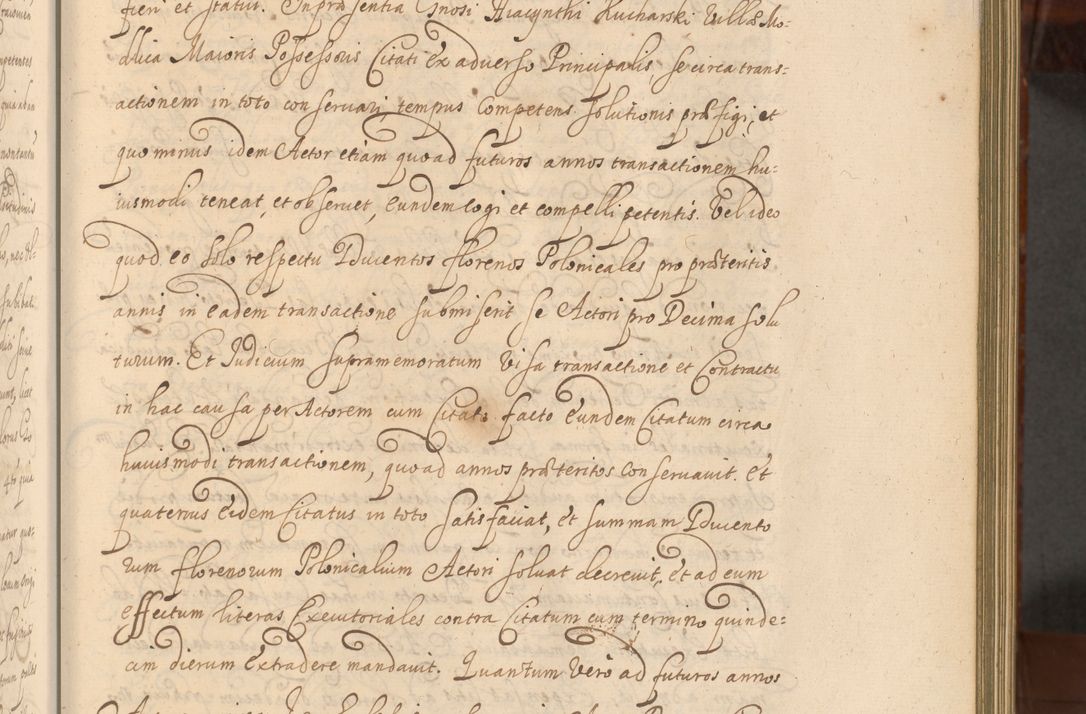 fieri et statui. Inpræsentia Gnosi Hiacynthi Kucharski Villæ Mo=
dlica Maioris Possessoris Citati Ex adverso Principalis, se circa trans=
actionem in toto conservari, tempus Competens solutionis præfigi, et
quominus idem Actor etiam quoad futuros annos transactionem hu=
iusmodi teneat, et observet, Eundem cogi et compelli petentis. Vel ideo
quod eo solo respectu Ducentos florenos Polonicales pro præteritis
annis in eadem transactione submiserit se Actori pro Decima solu
turum. Et Iudicium supramemoratum Visa transactione et Contractu
in hac causa per Actorem cum Citato facto Eundem Citatum circa
huiusmodi transactionem, quoad annos præteritos conservavit. Et
quatenus Eidem Citatus in toto satisfaciat, et summam Ducento
rum florenorum Polonicalium Actori solvat decrevit, et ad eum
effectum literas Executoriales contra Citatum cum termino quinde=
cim dierum Extradere mandavit. Quantum Vero ad futuros annos